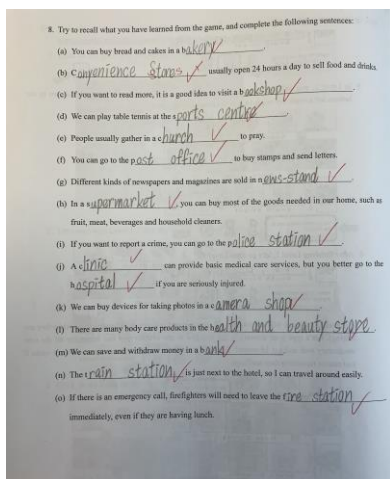 8. Try to recall what you have learned from the game, and complete the following sentences:
(a) You can buy bread and cakes in a bakery.
(b) Convenience Stores usually open 24 hours a day to sell food and drinks.
(c) If you want to read more, it is a good idea to visit a bookshop.
(d) We can play table tennis at the sports centre.
(e) People usually gather in a church to pray.
(f) You can go to the post office to buy stamps and send letters.
(g) Different kinds of newspapers and magazines are sold in news-stand.
(h) In a supermarket, you can buy most of the goods needed in our home, such as
fruit, meat, beverages and household cleaners.
(i) If you want to report a crime, you can go to the police station.
(j) A clinic can provide basic medical care services, but you better go to the
hospital if you are seriously injured.
(k) We can buy devices for taking photos in a camera shop.
(l) There are many body care products in the health and beauty store.
(m) We can save and withdraw money in a bank.
(n) The train station is just next to the hotel, so I can travel around easily.
(o) If there is an emergency call, firefighters will need to leave the fire station
immediately, even if they are having lunch.